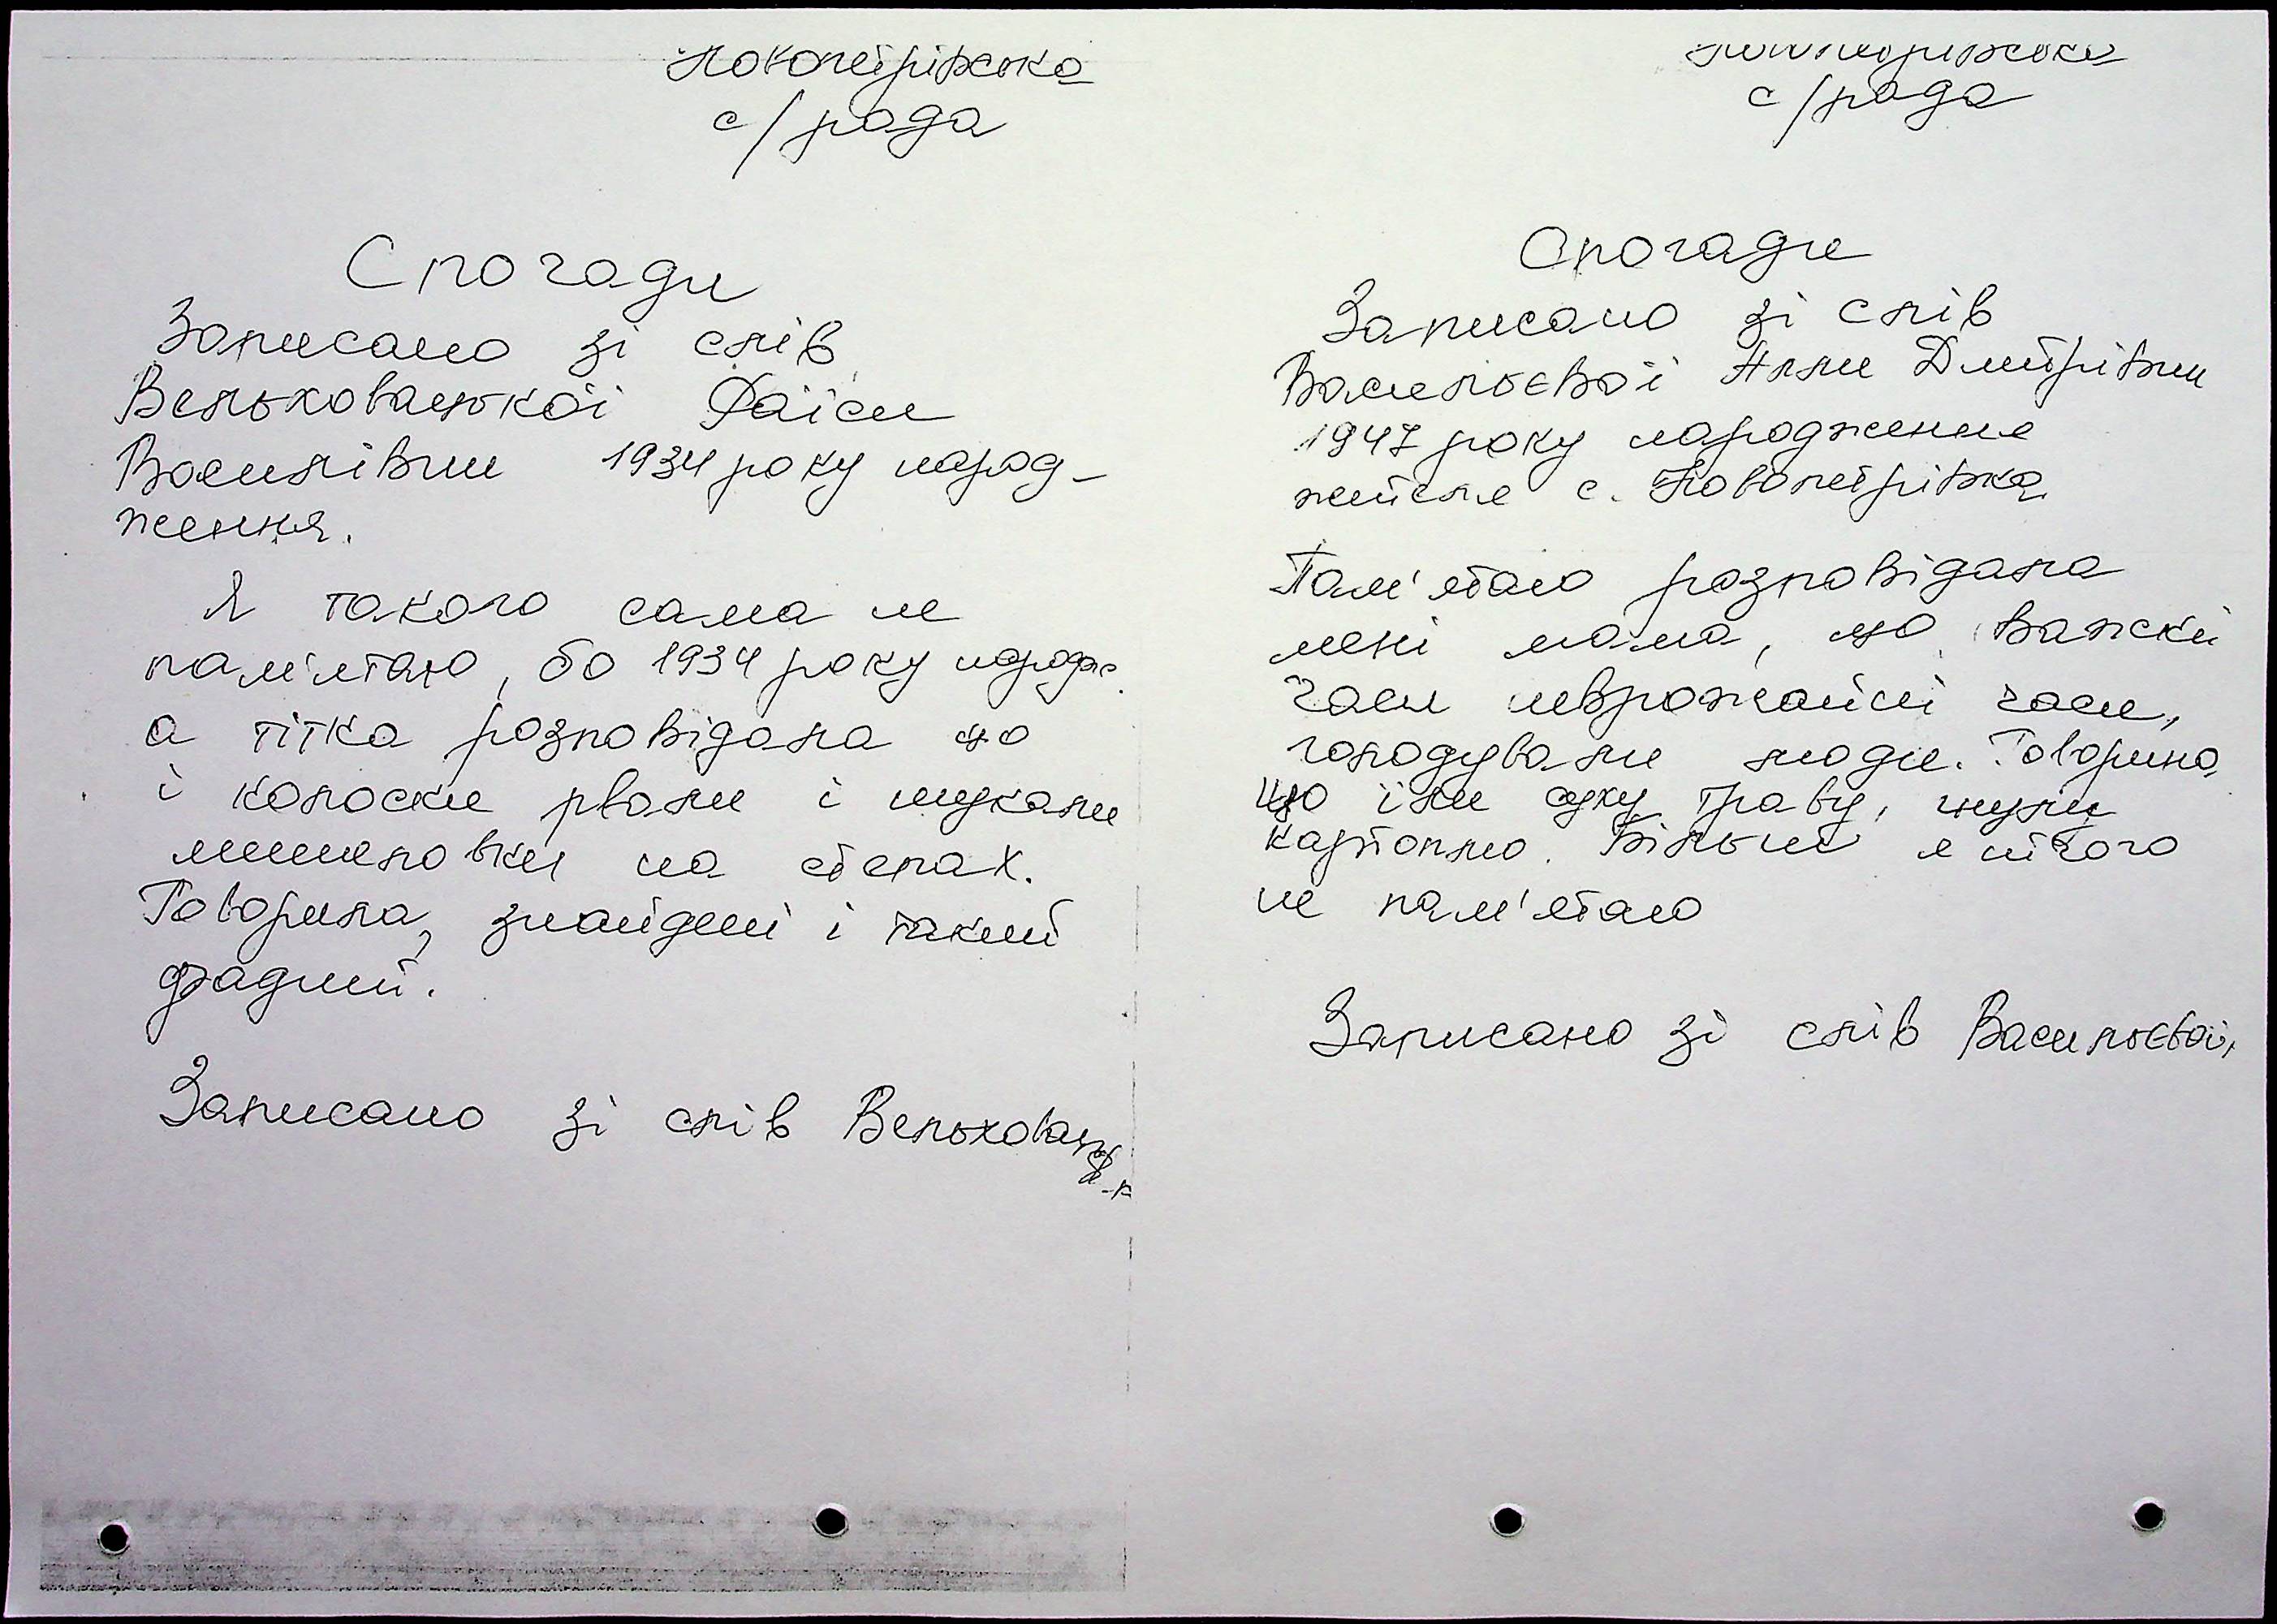 Новопетрівська
с/рада
Спогади
Записано зі слів
Вельховацької Раїси
Василівни 1934 року народ-
ження.
Я такого сама не
пам'ятаю, бо 1934 року народж.
а тітка розповідала що
і колоски рвали і шукали
на степах.
Говорила, знайдені і такий
Записано зі слів Вельховацьк
Новопетрівська
с/рада
Спогади
Записано зі слів
Васильєвої Анни Дмитрівни
1947 року народження
с. Новопетрівка
Пам'ятаю розповідала
мені мама, що важкі
часи неврожайні часи,
голодували люди. Говорила,
що їли суху траву,
картоплю. Більше я нічого
не пам'ятаю
Записано зі слів Васильєвої,